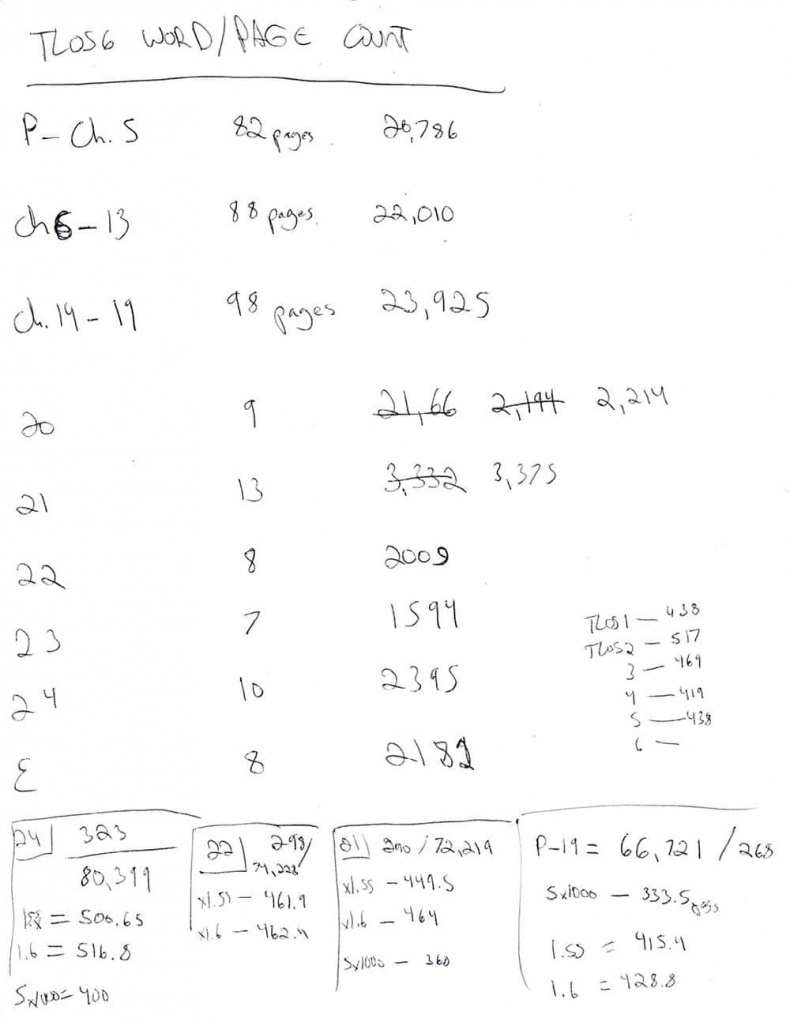 TLOS6 WORD/PAGE COUNT
P- Ch. 5 82 pages 20,786
ch6-13 88 pages 22,010
ch. 14-19 98 pages 23,925
20 9 21,66 2,194 2,214
21 13 3,332 3,375
22 8 2009
23 7 1594
24 10 2395
E 8 2182
TLOS1 — 438
TLOS2 — 517
3 — 469
4 — 419
5 — 438
6 —
24 323
80,399
1.6 = 516.8
5x1000= 400
22 298/
74,228
x1.55 - 461.9
x1.6 - 462.4
21 290/72,219
x1.55 - 449.5
x1.6 - 464
5x1000 - 360
P-19 = 66,721/268
5x1000 - 333.5 pages
1.55 = 415.4
1.6 = 428.8